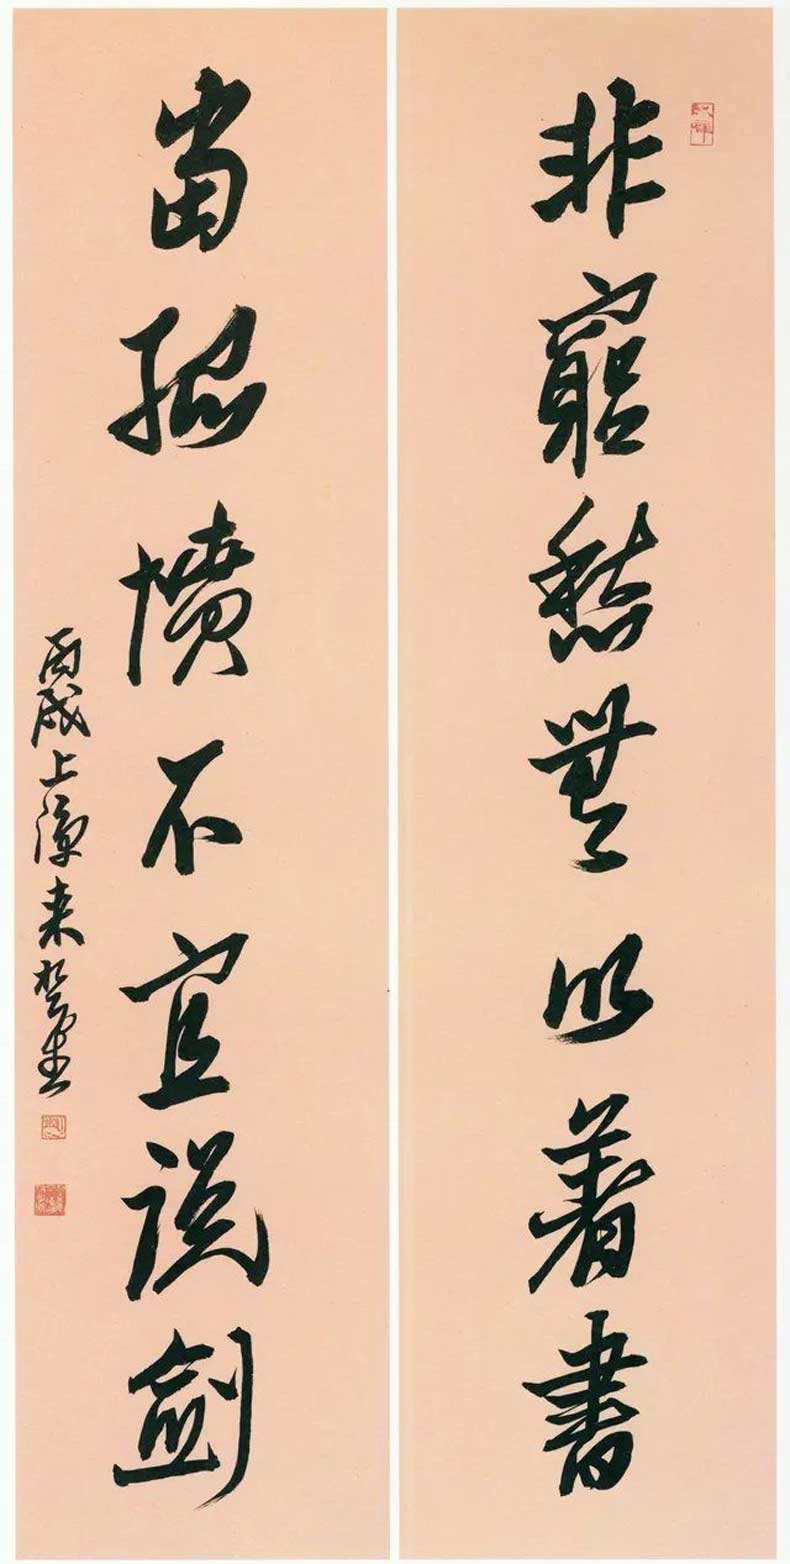 非窮愁無以著書
當孤憤不宜說劍
丙戌上 来楚生